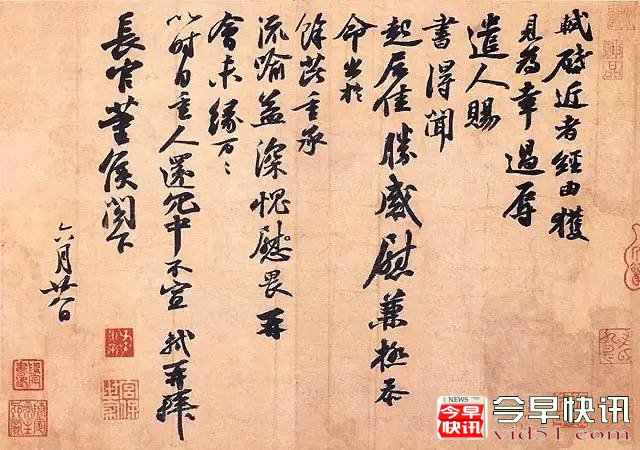 軾啓近者經由獲
見為幸過辱
遣人賜
書得聞
起居佳勝感慰兼極忝
命出於
餘芘重承
流喻益深愧慰畏再
會未緣万〻
以時自重人還冗中不宣 軾再拜
長官董侯閣下
六月廿八日
NEWS
今早
快讯
今早快讯
vid51.com